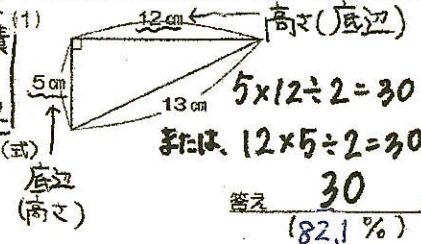 積 (1)
12cm
高さ(底辺)
5cm
13cm
5×12÷2=30
または、12×5÷2=30
(式)
底辺
(高さ)
答え 30
(82.1%)